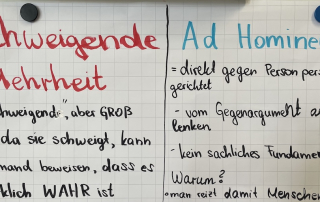 chweigende
Mehrheit
chweigend", aber GROß
da sie schweigt, kann
mand beweisen, dass es
klich WAHR ist
Ad Homine
= direkt gegen Person per
gerichtet
- vom Gegenargument a
lenken
- kein sachliches Fundame
Warum?
man reizt damit Mensche